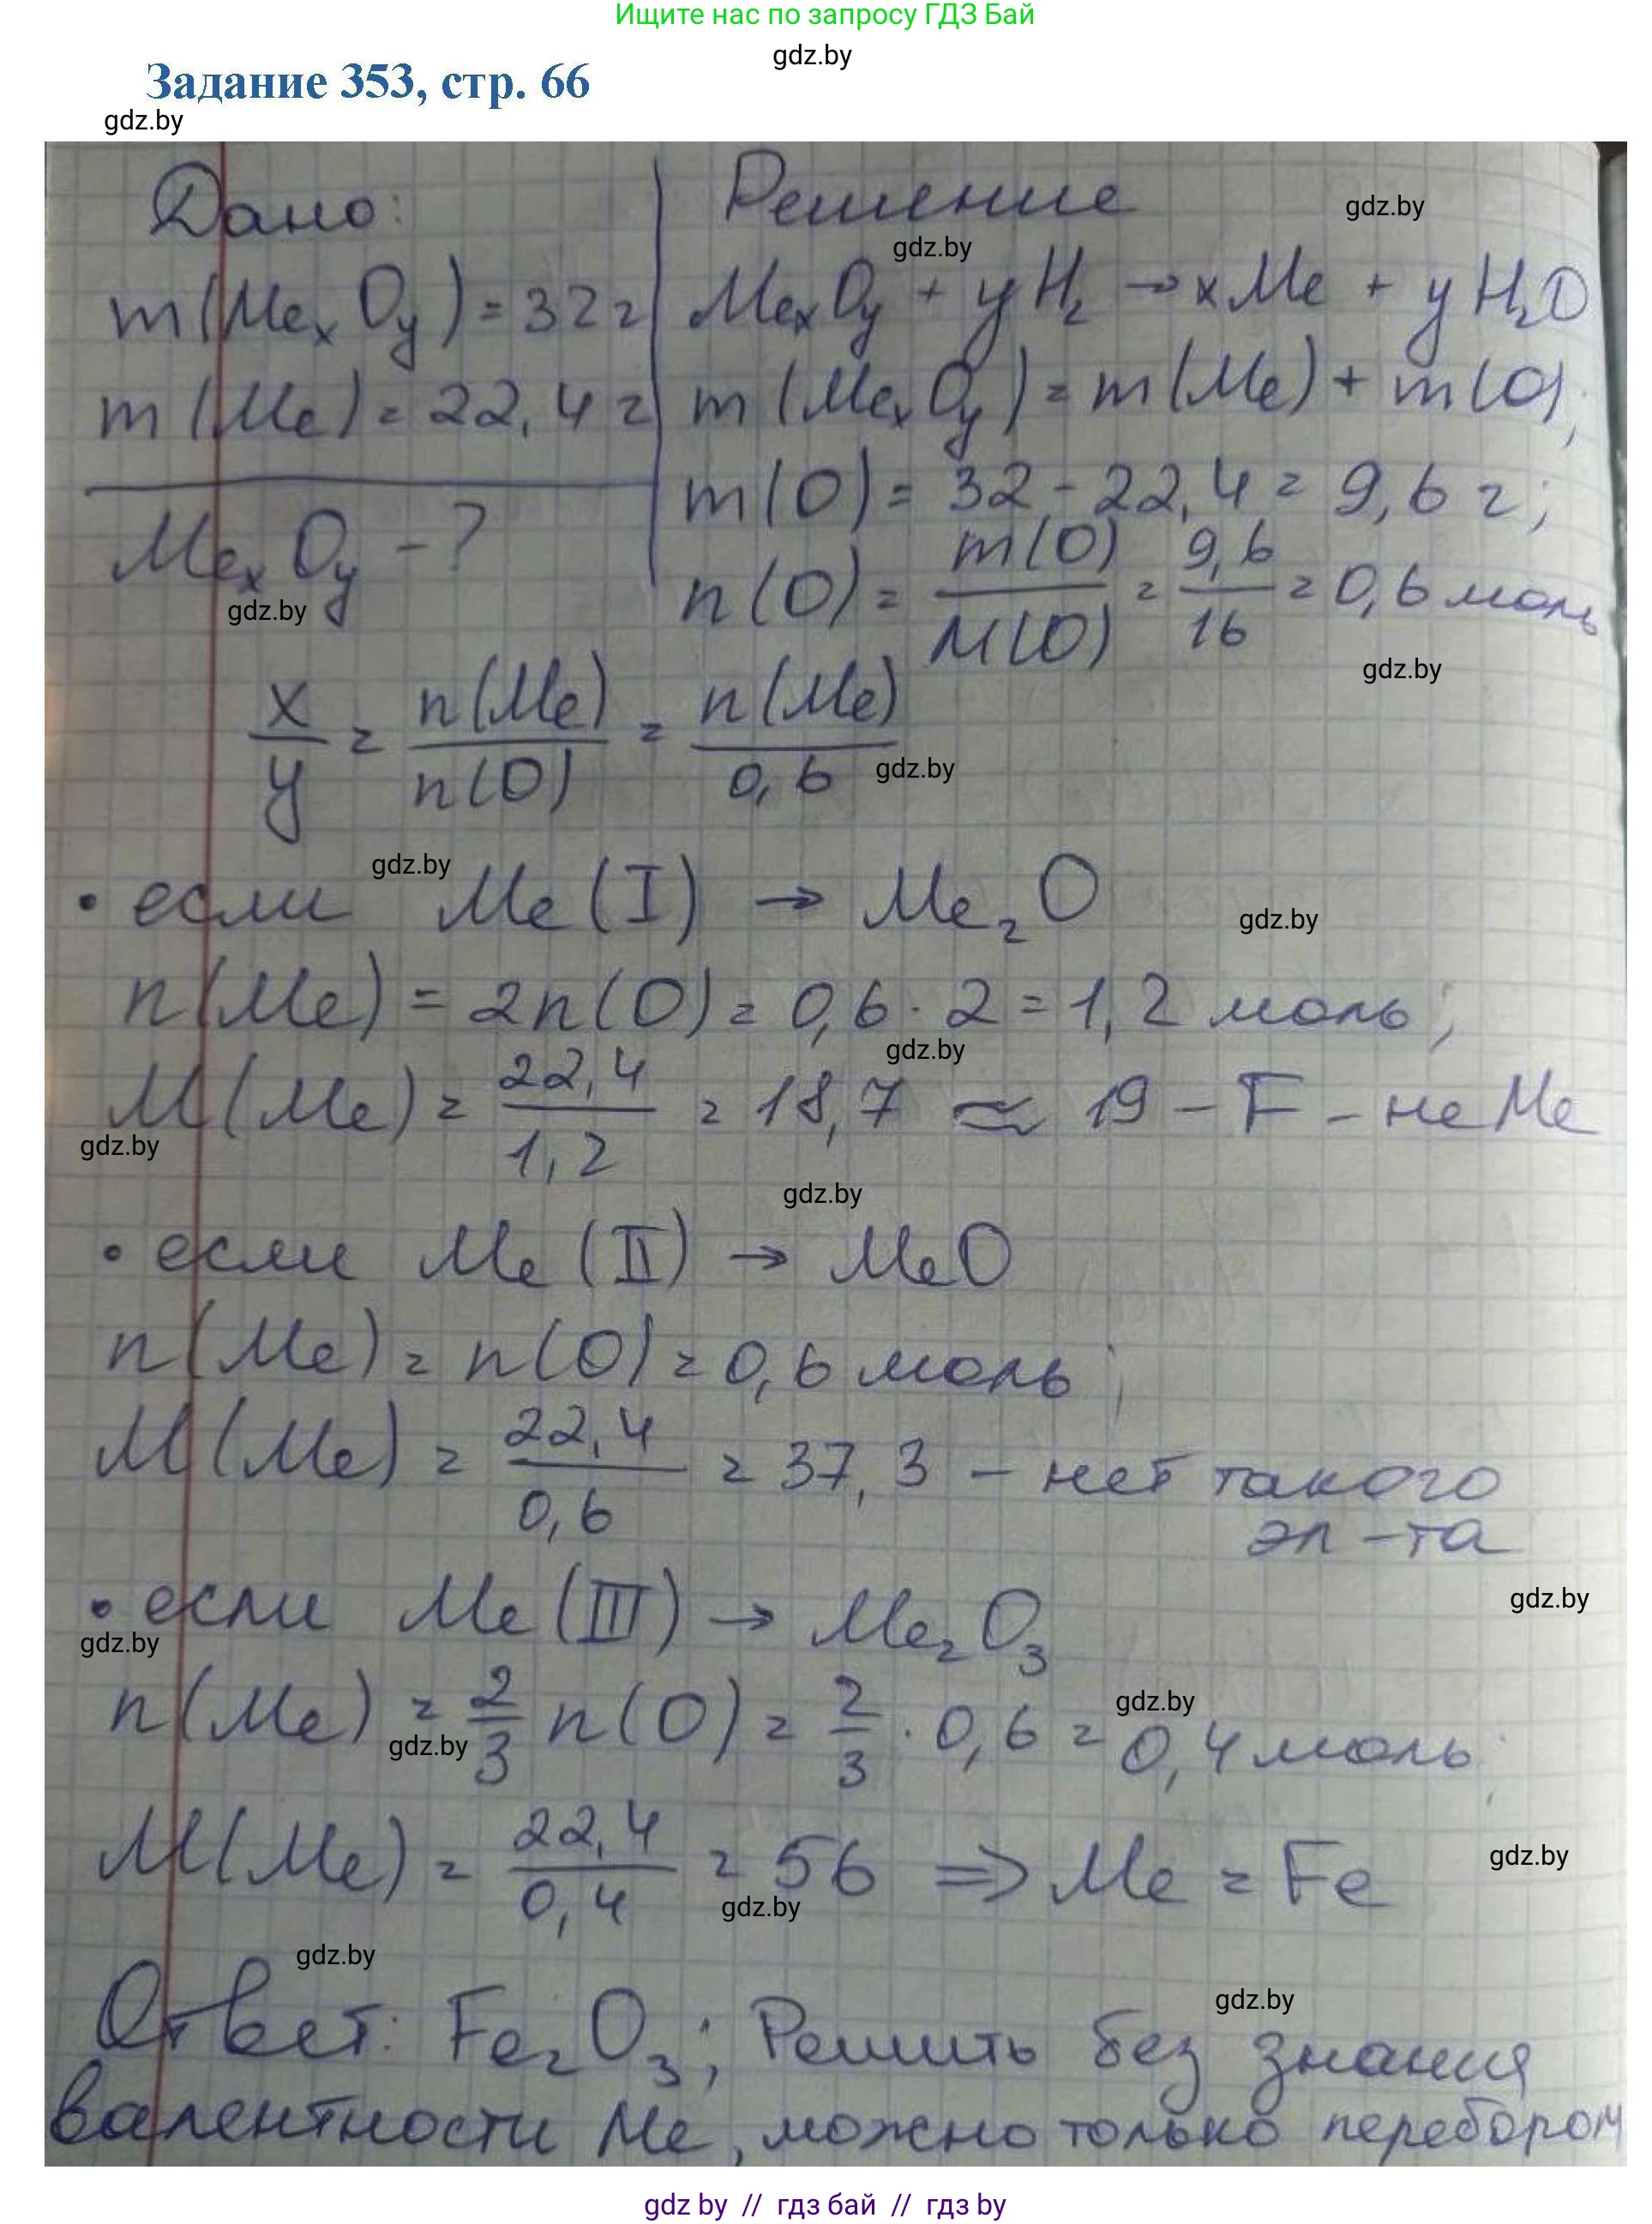 Ищите нас по запросу ГДЗ Бай
gdz.by
Задание 353, стр. 66
gdz.by
Дано:
Решение
gdz.by
gdz.by
m(MeₓOᵧ) = 32 г
MeₓOᵧ + yH₂ → xMe + yH₂O
m(Me) = 22,4 г
m(MeₓOᵧ) = m(Me) + m(O);
m(O) = 32 - 22,4 = 9,6 г;
MeₓOᵧ - ?
n(O) = m(O)/M(O) = 9,6/16 = 0,6 моль
gdz.by
gdz.by
x/y = n(Me)/n(O) = n(Me)/0,6
gdz.by
gdz.by
• если Me(I) → Me₂O
gdz.by
n(Me) = 2n(O) = 0,6 · 2 = 1,2 моль;
gdz.by
M(Me) = 22,4/1,2 = 18,7 ≈ 19 - F - не Me
gdz.by
gdz.by
• если Me(II) → MeO
n(Me) = n(O) = 0,6 моль;
M(Me) = 22,4/0,6 = 37,3 - нет такого
эл-та
• если Me(III) → Me₂O₃
gdz.by
gdz.by
n(Me) = 2/3 n(O) = 2/3 · 0,6 = 0,4 моль;
gdz.by
gdz.by
M(Me) = 22,4/0,4 = 56 ⇒ Me = Fe
gdz.by
gdz.by
gdz.by
gdz.by
Ответ: Fe₂O₃; Решить без знания
валентности Me, можно только перебором
gdz by // гдз бай // gdz by